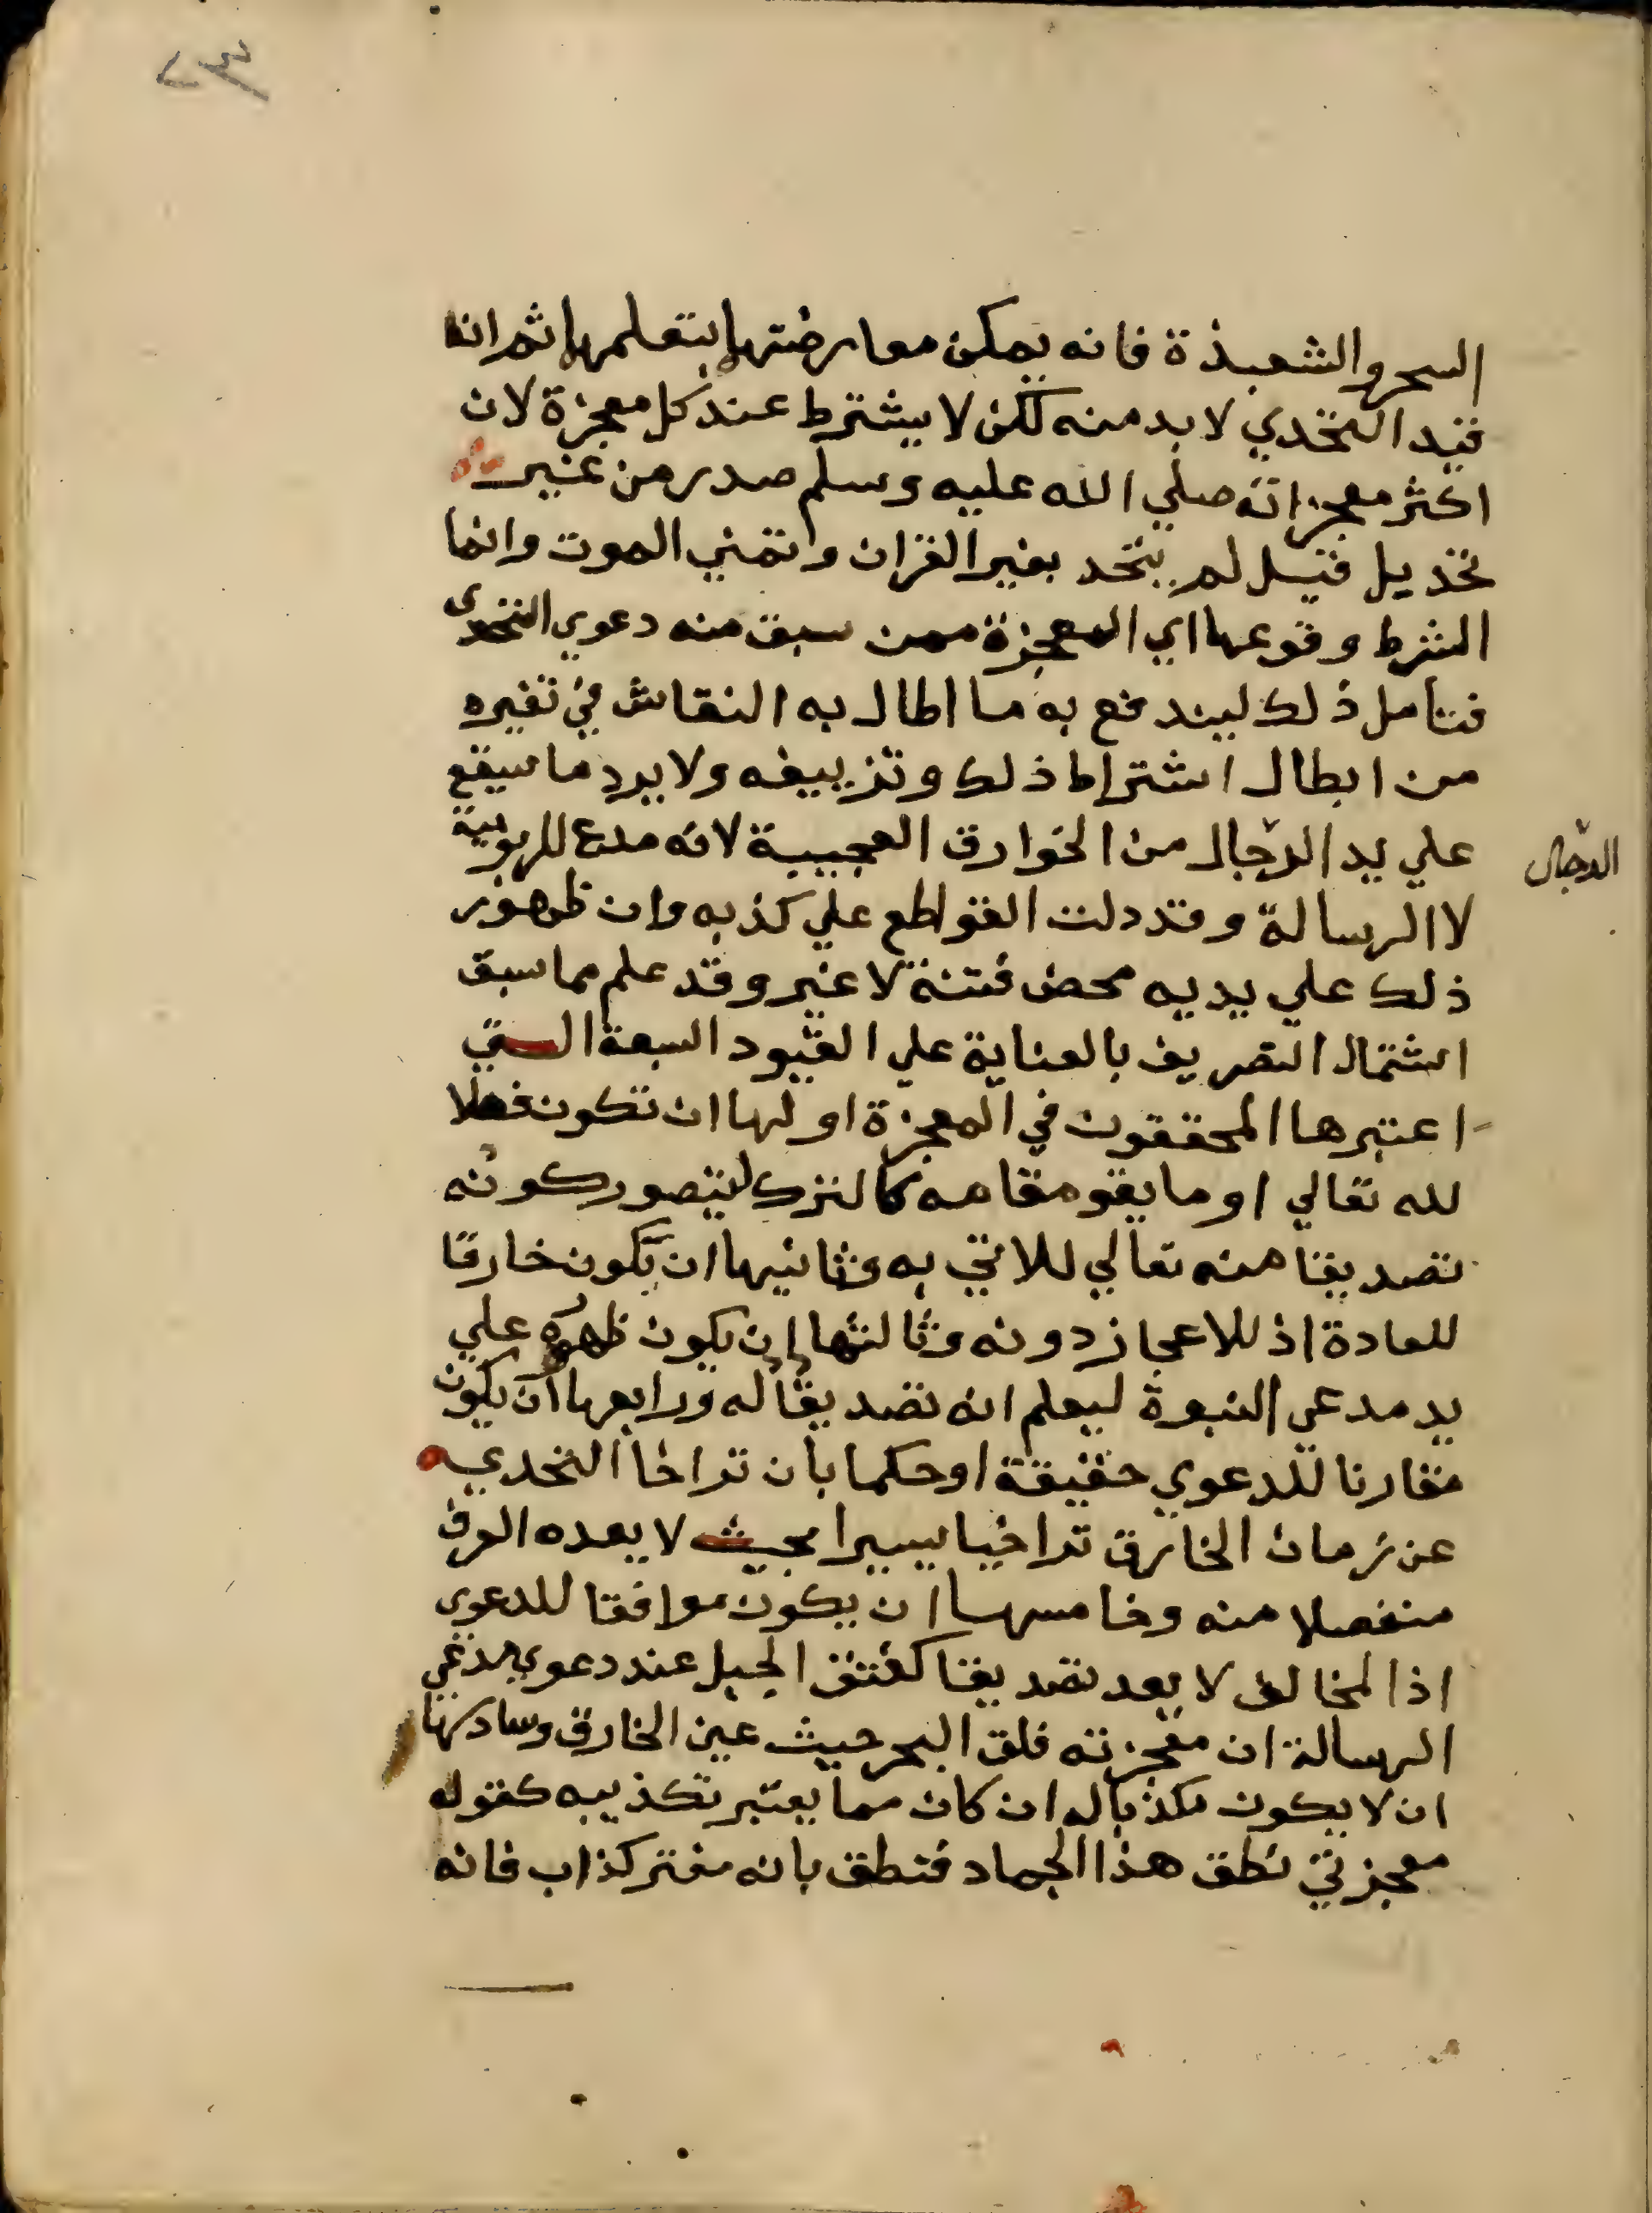 ٤٣
السحر والشعبذة فانه يمكن معارضتها بتعلمها ثم ان
قيد التحدي لا بد منه لكن لا يشترط عند كل معجزة لان
اكثر معجزاته صلي الله عليه وسلم صدر من غير
تحد بل قيل لم يتحد بغير القران وتمني الموت وانما
الشرط وقوعها اي المعجزة ممن سبق منه دعوي التحدي
فتأمل ذلك ليندفع به ما اطال به النقاش في تفيره
من ابطال اشتراط ذلك وتزييفه ولا يرد ما سيقع
علي يد الدجال من الخوارق العجيبة لانه مدع للربوبية
الدجال
لا الرسالة وقد دلت القواطع علي كذبه وان ظهور
ذلك علي يديه محض فتنة لا غير وقد علم مما سبق
اشتمال التعريف بالعناية علي القيود السبعة التي
اعتبرها المحققون في المعجزة اولها ان تكون فعلا
لله تعالي او ما يقوم مقامه كالترك ليتصور كونه
تصديقا منه تعالي للاتي به وثانيها ان يكون خارقا
للعادة اذ للاعجاز دونه وثالثها ان يكون ظهوره علي
يد مدعي النبوة ليعلم انه تصديقا له ورابعها ان يكون
مقارنا للدعوي حقيقة او حكما بان تراخا التحدي
عن زمان الخارق تراخيا يسيرا بحيث لا يعده العرف
منفصلا منه وخامسها ان يكون موافقا للدعوي
اذ المخالف لا يعد تصديقا كفتق الجبل عند دعوي مدعي
الرسالة ان معجزته فلق البحر حيث عين الخارق وسادسها
ان لا يكون مكذبا له ان كان مما يعتبر تكذيبه كقوله
معجزتي نطق هذا الجماد فنطق بانه مفتر كذاب فانه